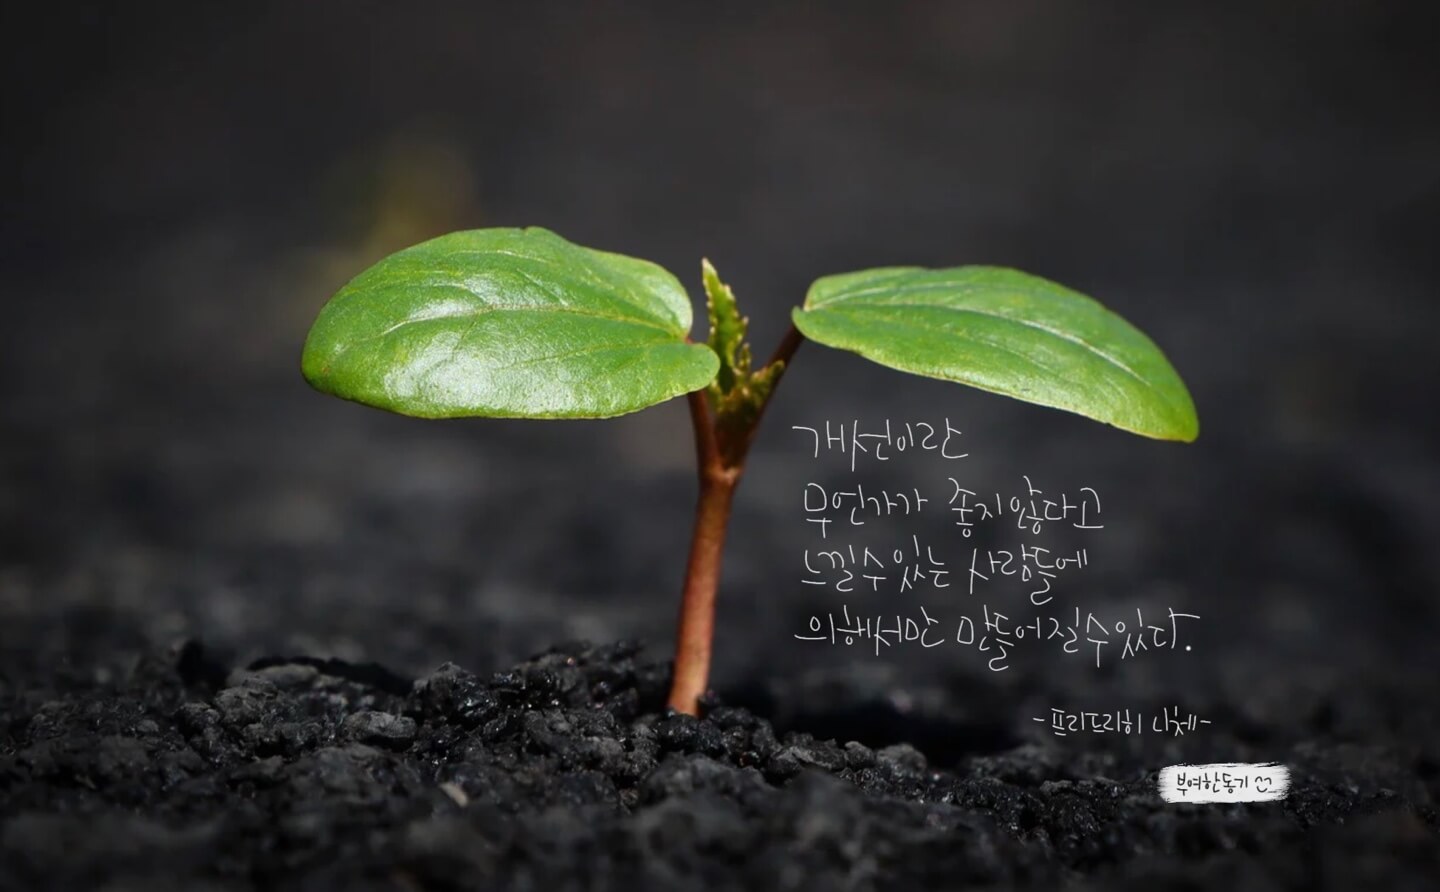 개선이란
무언가가 좋지않다고
느낄수있는 사람들에
의해서만 만들어질수있다.
-프리드리히 니체-
부여한동기